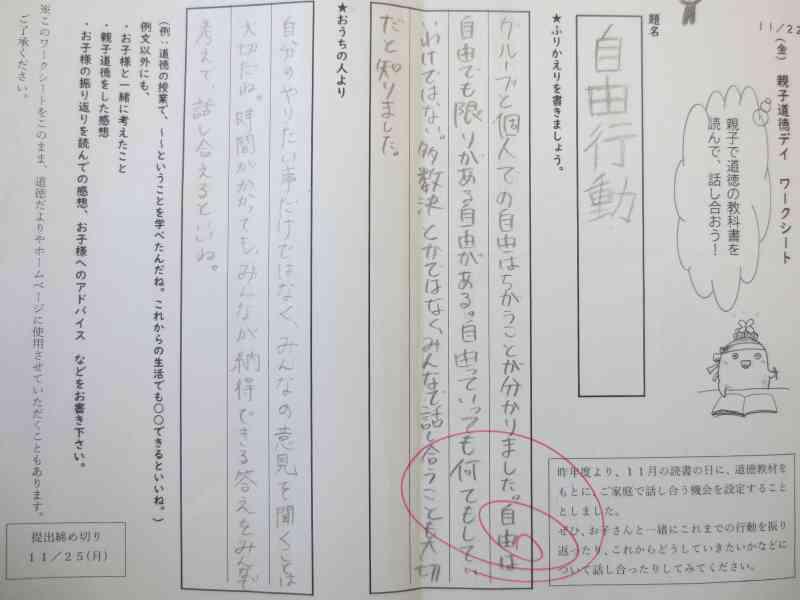 11/22(金) 親子道徳デイ ワークシート
親子で道徳の教科書を
読んで、話し合おう！
昨年度より、11月の読書の日に、道徳教材を
もとに、ご家庭で話し合う機会を設定すること
としました。
ぜひ、お子さんと一緒にこれまでの行動を振り
返ったり、これからどうしていきたいかなどに
ついて話し合ったりしてみてください。
題名
自由行動
★ふりかえりを書きましょう。
グループと個人での自由はちがうことが分かりました。自由は
自由でも限りがある自由がある。自由っていっても何でもしてい
いわけではない。多数決とかではなくみんなで話し合うことも大切
だと知りました。
★おうちの人より
自分のやりたい事だけではなく、みんなの意見を聞くことは
大切だね。時間がかかっても、みんなが納得できる答えをみんなで
考えて、話し合えるといいね。
（例：道徳の授業で、～～ということを学べたんだね。これからの生活でも〇〇できるといいね。）
例文以外にも、
・お子様と一緒に考えたこと
・親子道徳をした感想
・お子様の振り返りを読んでの感想、お子様へのアドバイス などをお書き下さい。
※このワークシートをこのまま、道徳だよりやホームページに使用させていただくこともあります。
ご了承ください。
提出締め切り
11/25(月)